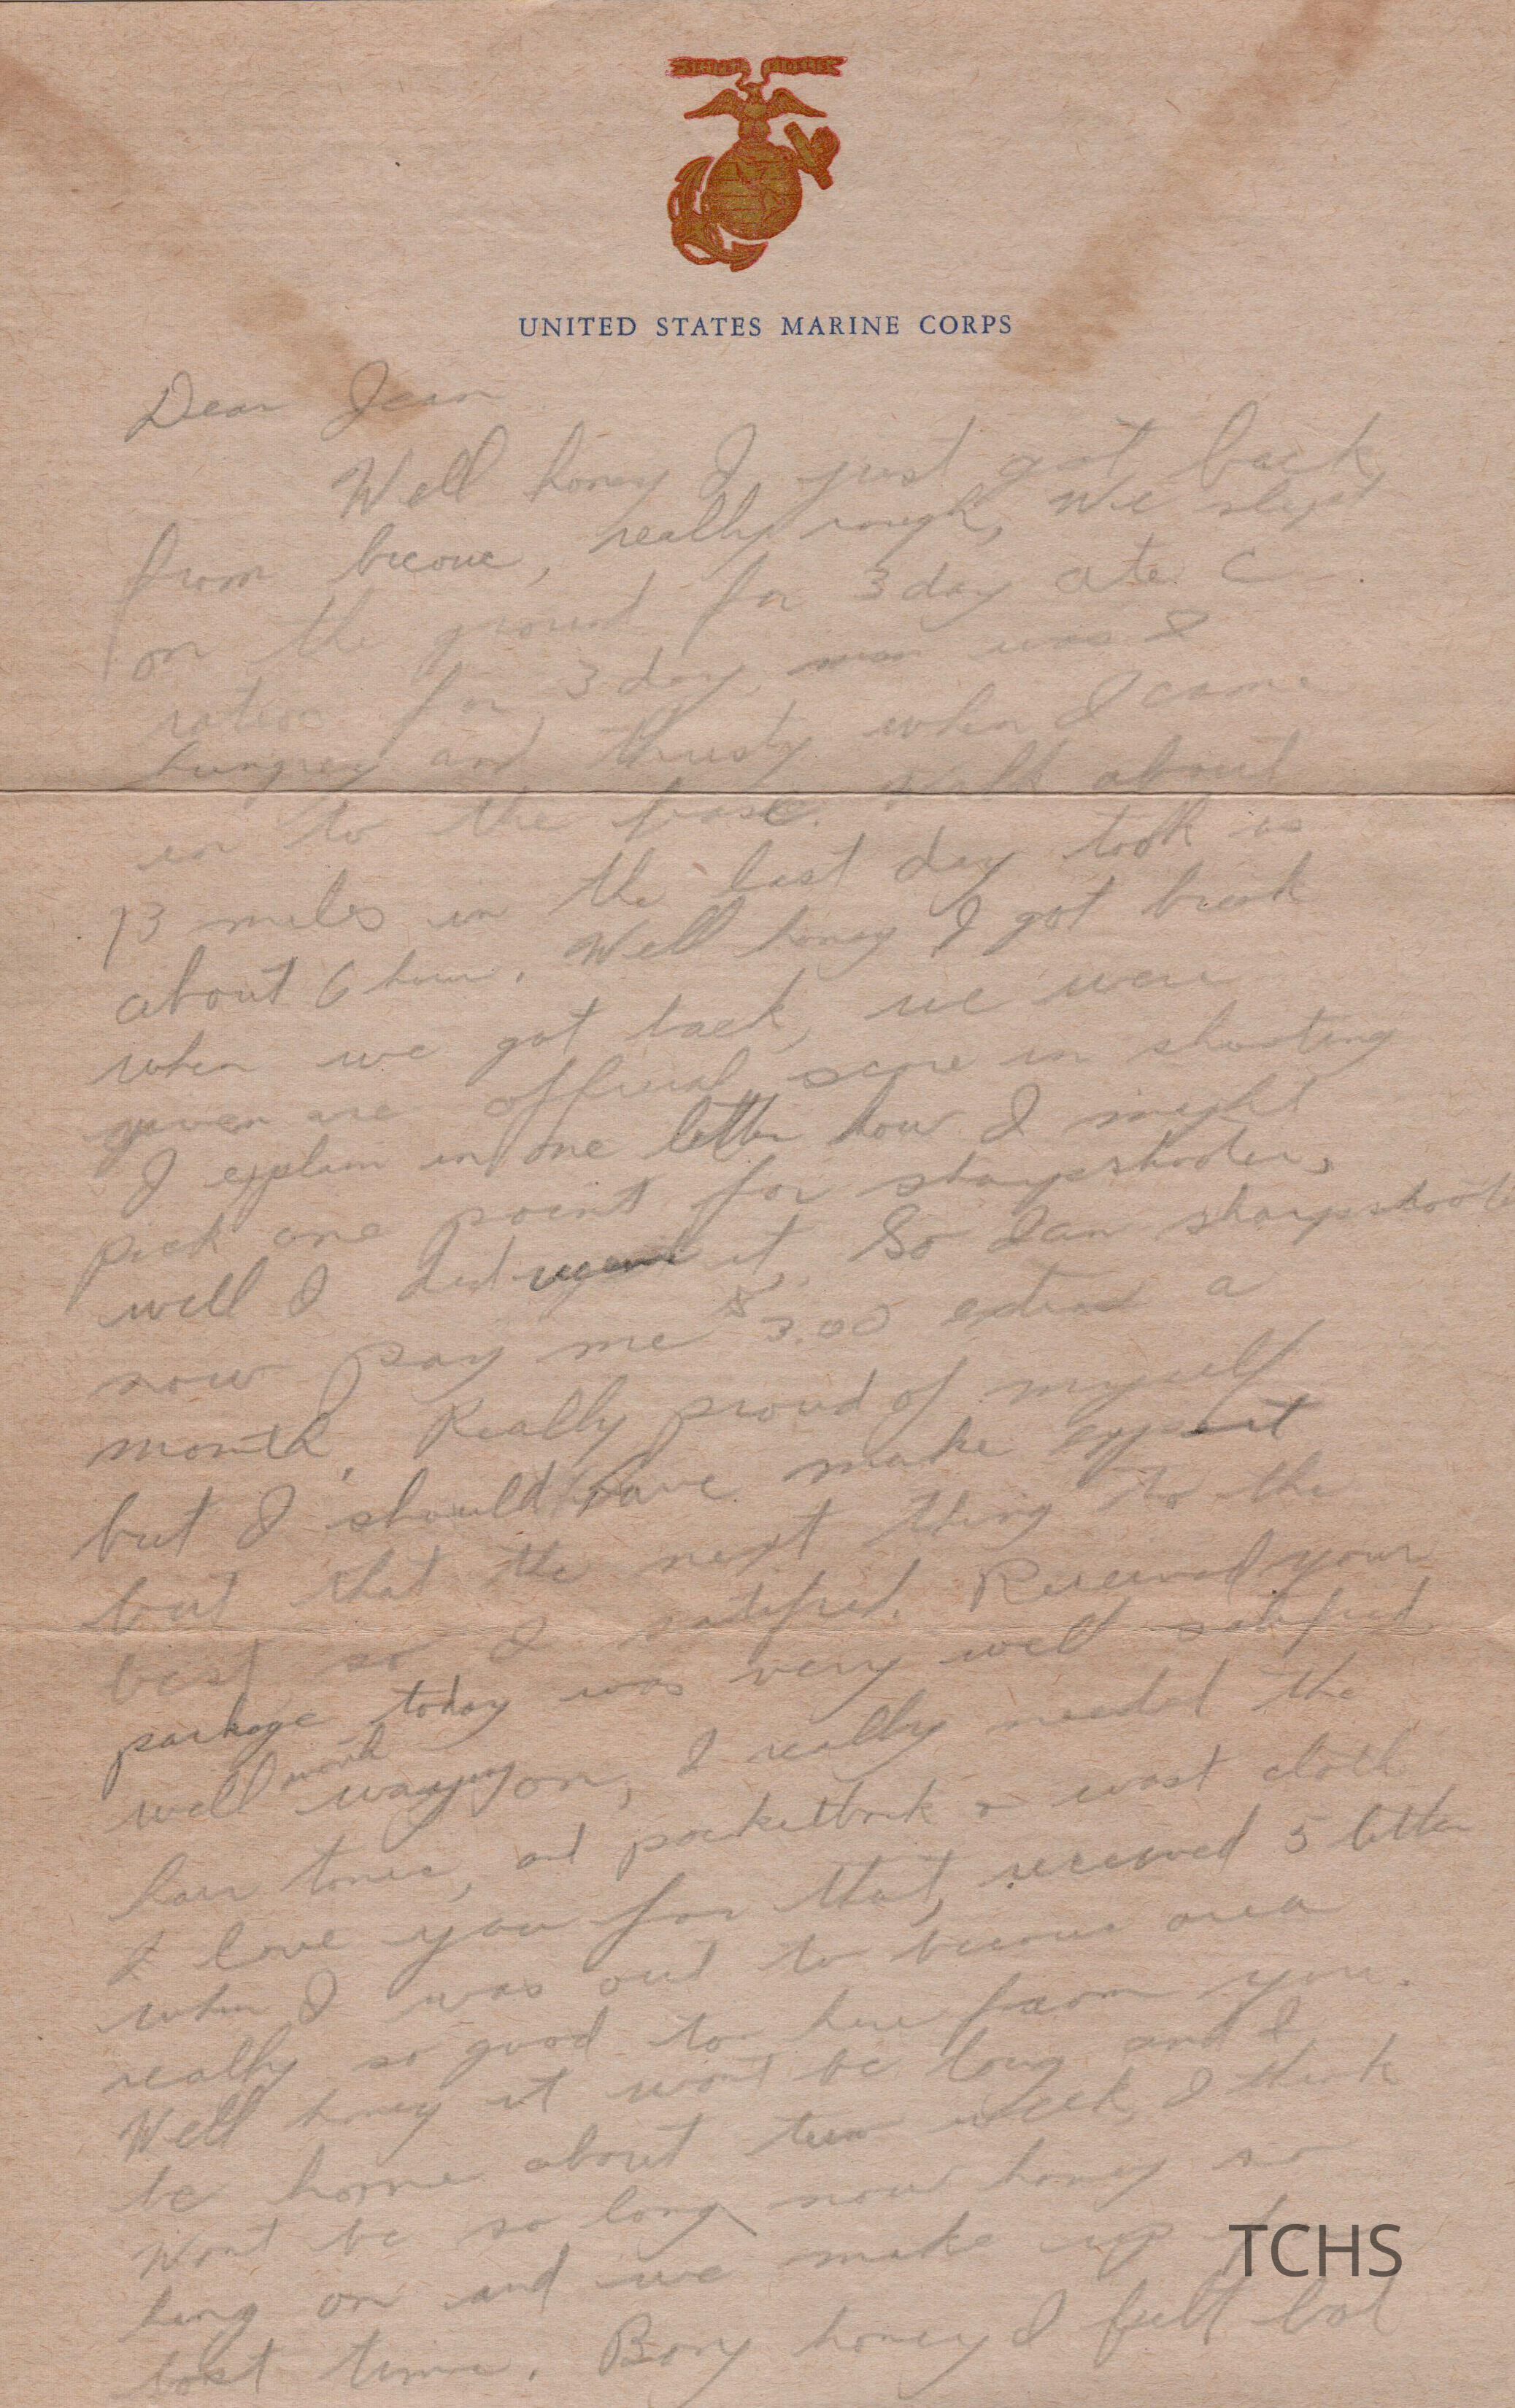 UNITED STATES MARINE CORPS
Dear Jean
Well honey I just got back
from bicouc, really rough, We slept
on the ground for 3 day ate C
ration for 3 day, man was I
hungrey and thirsty when I came
in to the base. Walk about
13 miles in the last day took us
about 6 hour. Well honey I got break
when we got back, we were
given are official score in shooting
I explain in one letter how I might
pick one point for sharpshooter,
well I did it. So I am sharpshooter
now pay me $3.00 extra a
month. Really proud of myself
but I should have make expert
but that the next thing to the
best so I satified. Received your
package today was very well satified
well worth on, I really needed the
hair tonic, and pocketbook & wast cloth
I love you for that, received 5 letter
when I was out to area
really so good to hear from you.
Well honey it wont be long and I
be home about two week, I think
Wont be so long now honey so
hang on and we make up
lost time. Boy honey I felt bad
TCHS